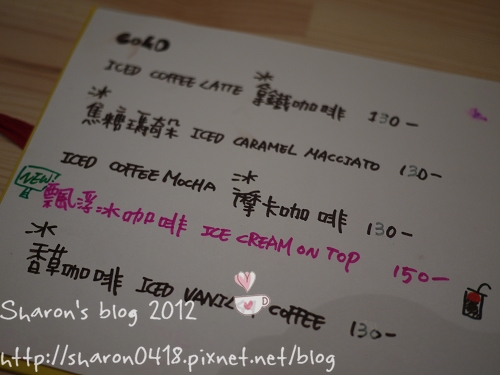 COLD
ICED COFFEE LATTE 冰拿鐵咖啡 130-
冰焦糖瑪奇朵 ICED CARAMEL MACCIATO 130-
ICED COFFEE MOCHA 冰摩卡咖啡 130-
NEW! 飄浮冰咖啡 ICE CREAM ON TOP 150-
冰香草咖啡 ICED COFFEE 130-
Sharon's blog 2012
http://sharon0418.pixnet.net/blog